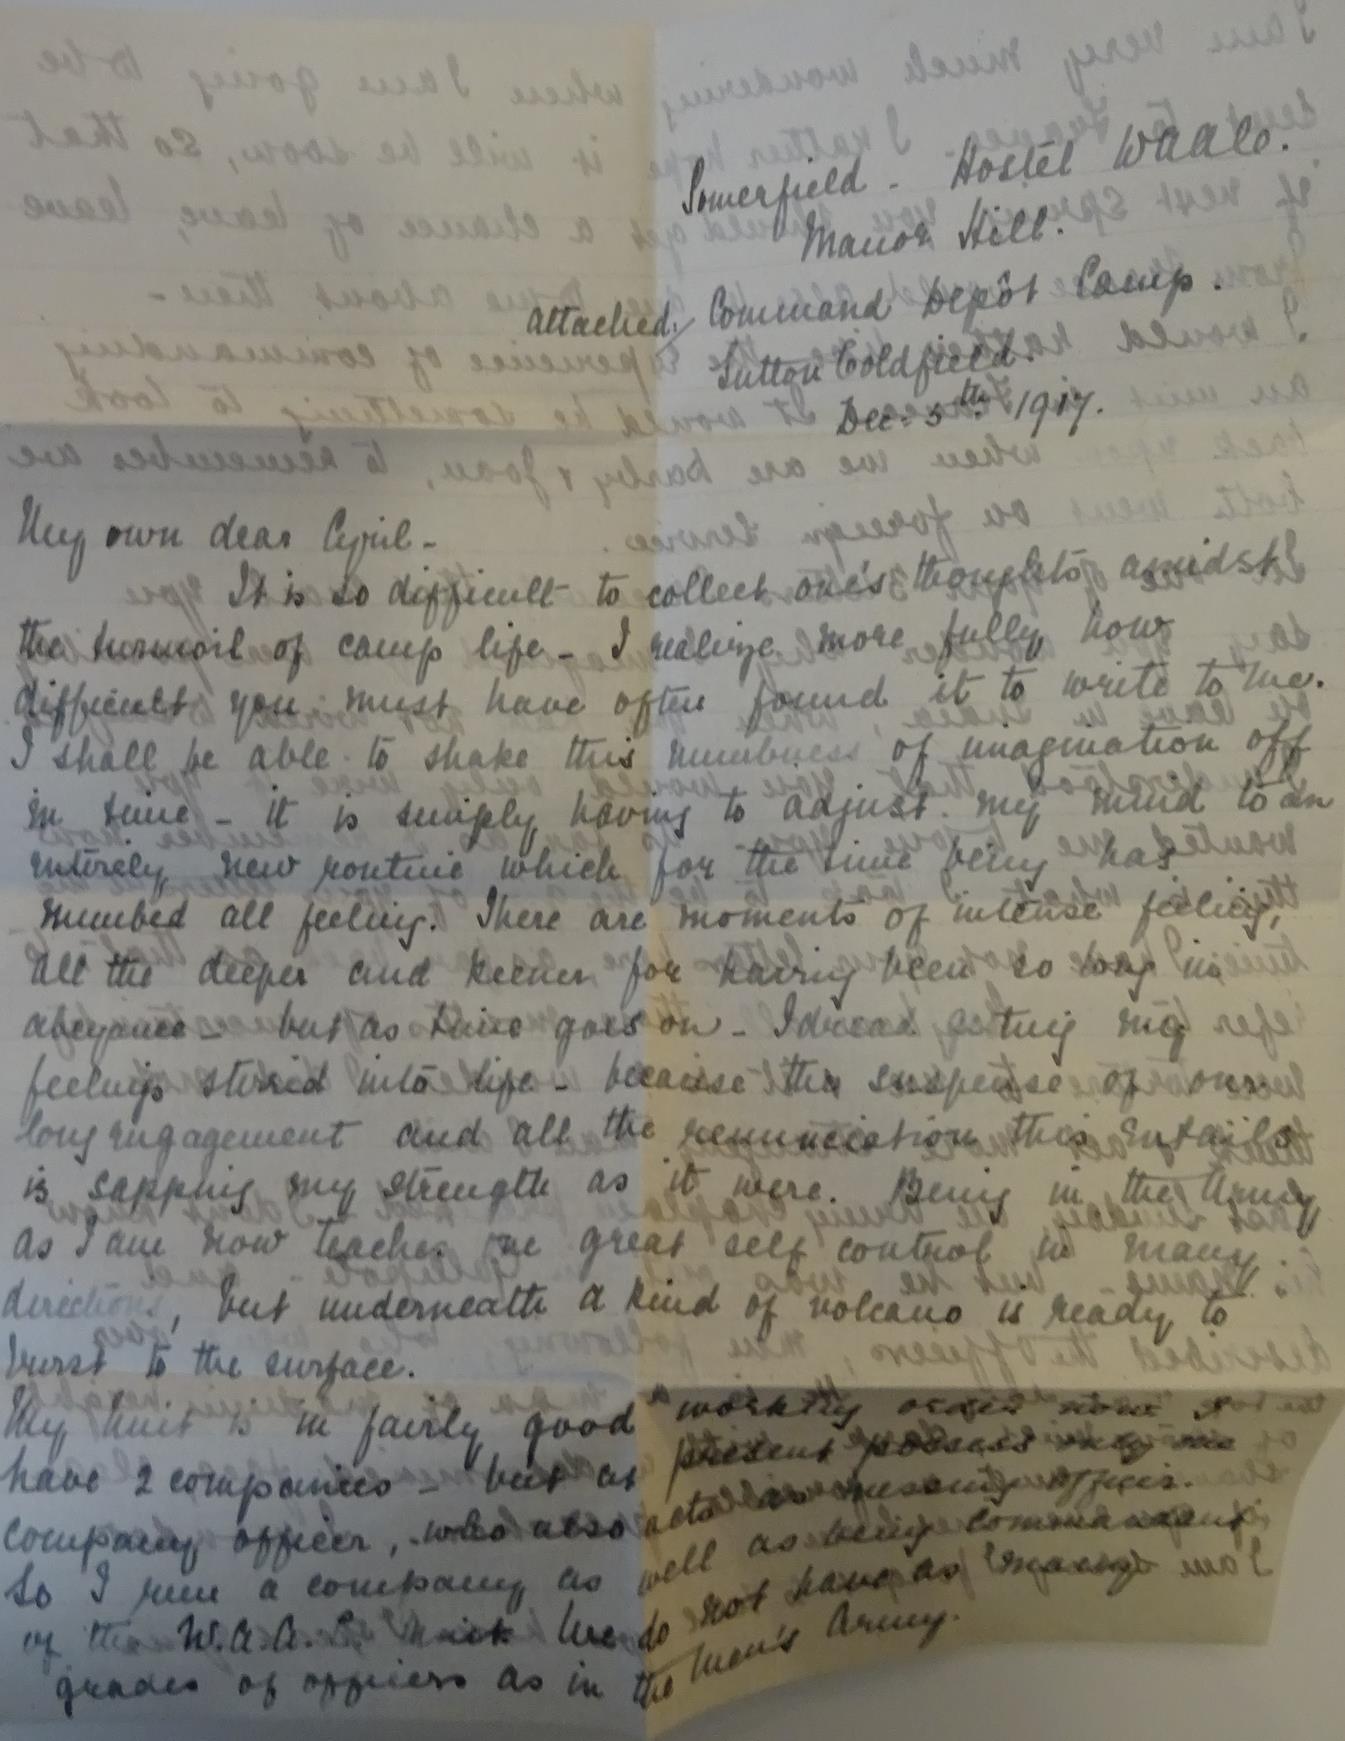 Somerfield - Hostel WAAC.
Manor Hill.
attached / Command Depôt Camp.
Sutton Coldfield.
Dec. 5th 1917.
My own dear Cyril -
It is so difficult to collect one's thoughts amidst
the turmoil of camp life - I realize more fully how
difficult you must have often found it to write to me.
I shall be able to shake this numbness of imagination off
in time - it is simply having to adjust my mind to an
entirely new routine which for the time being has
numbed all feeling. There are moments of intense feeling,
all the deeper and keener for having been so long in
abeyance - but as time goes on - I dread getting my
feelings stirred into life - because the suspense of our
long engagement and all the renunciation this entails
is sapping my strength as it were. Being in the Army
as I am now teaches me great self control in many
directions, but underneath a kind of volcano is ready to
burst to the surface.
My Unit is in fairly good working order now I
have 2 companies - but at present possess only one
company officer, who also acts as messing officer.
So I run a company as well as being Commandant
of the W.A.A.C. Unit. We do not have as many
grades of officers as in the Men's Army.